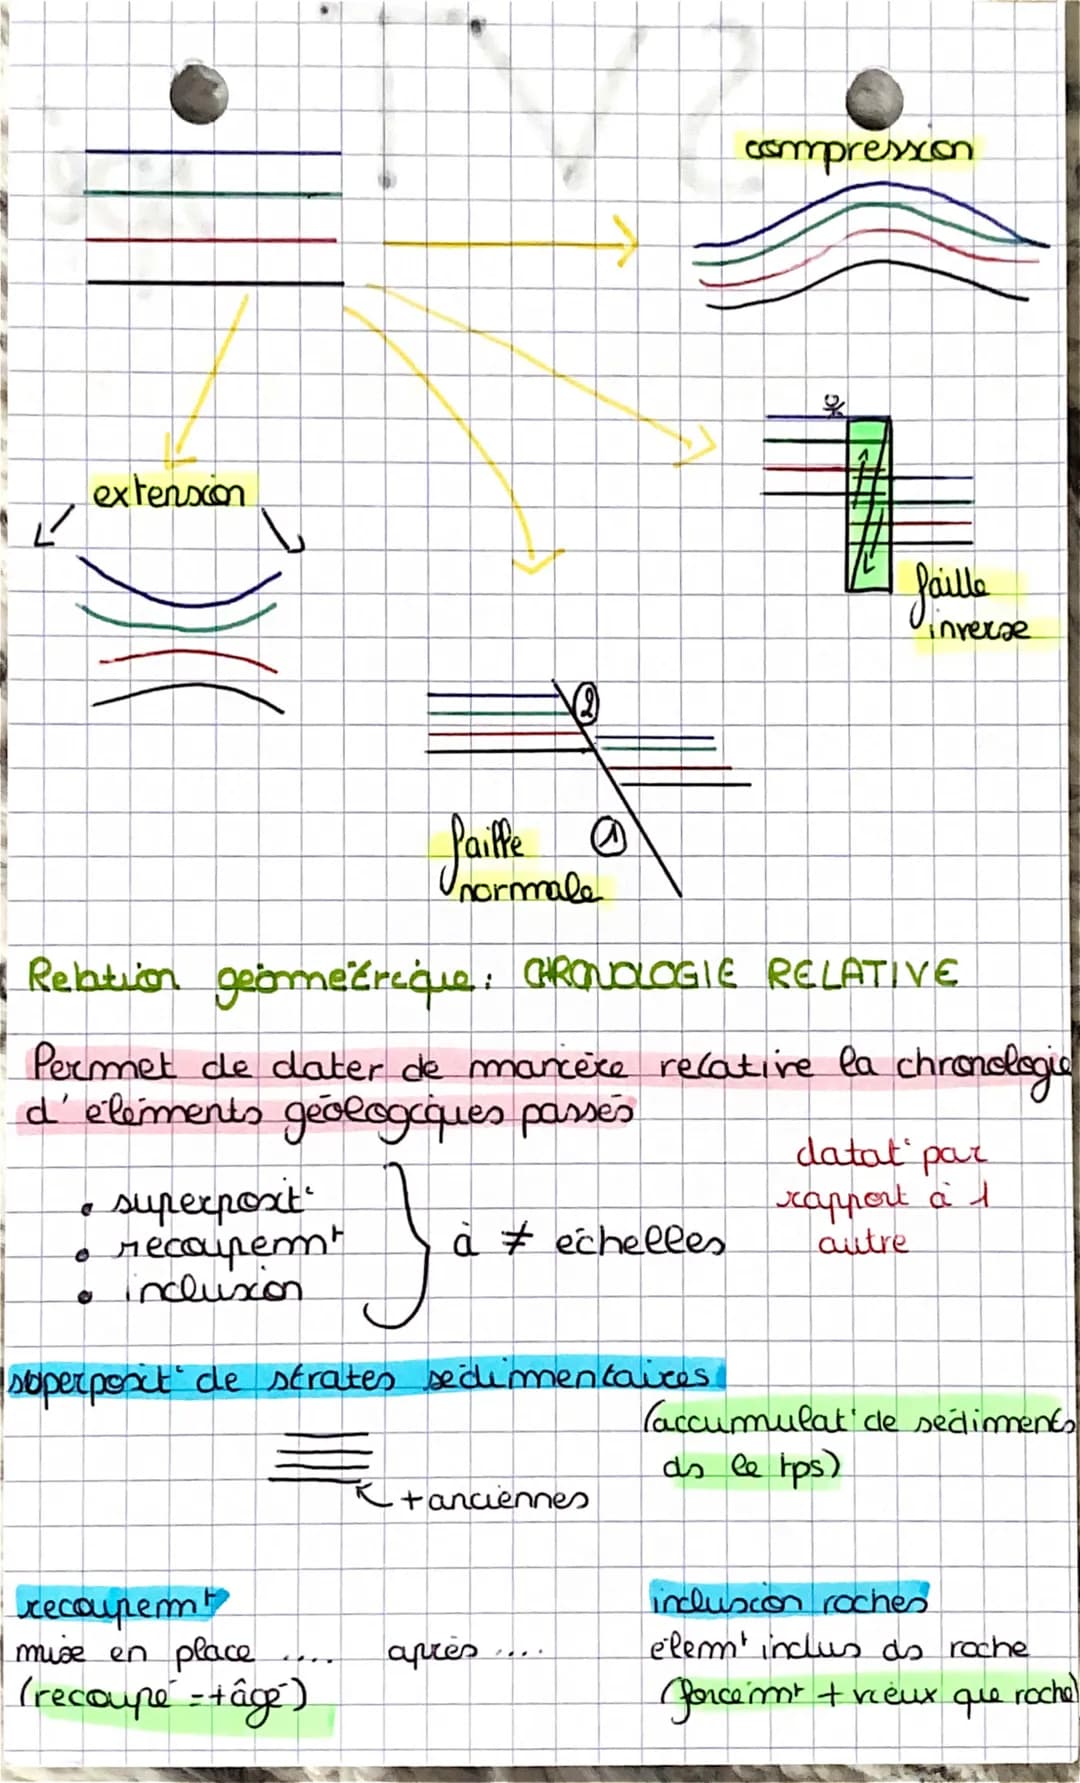 SVT
compression
extension
faille
inverse
2
faille
normale
1
Relation géométrique : CHRONOLOGIE RELATIVE
Permet de dater de manière relative la chronologie
d'éléments géologiques passés
datat° par
rapport à 1
autre
• superposit°
• recoupemnt
• inclusion
à ≠ échelles
superposit° de strates sédimentaires
(accumulat° de sédiments
ds le tps)
+ anciennes
recoupemnt
mise en place .... après ....
(recoupé = + âgé)
inclusion roches
élemt inclus ds roche
(forcémnt + vieux que roche)